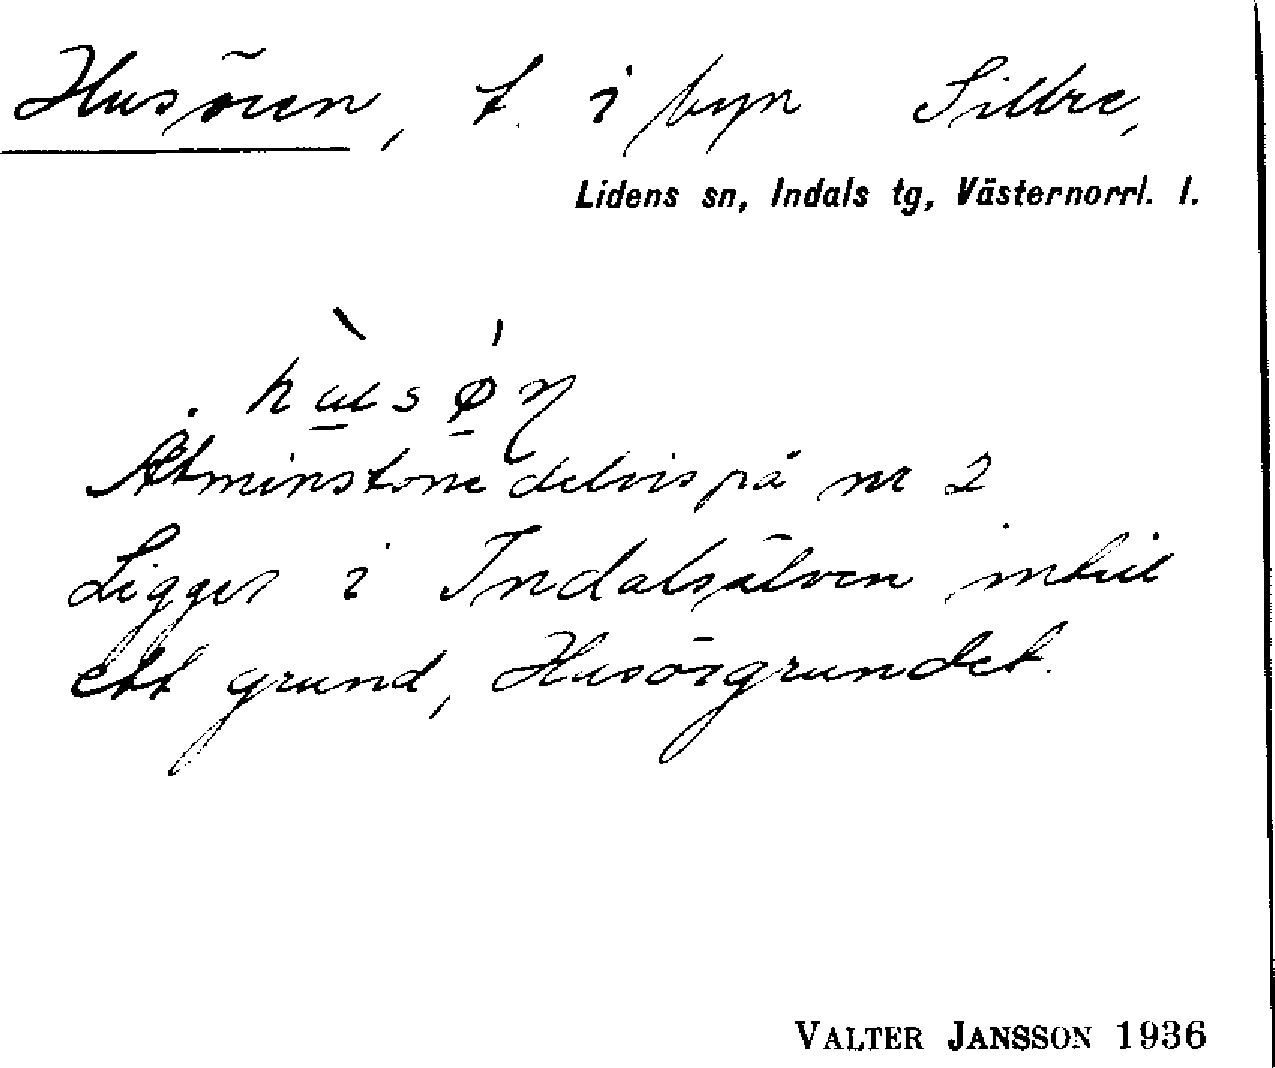 Husören, t. i byn Sillre,
Lidens sn, Indals tg, Västernorrl. l.
hùsǿn
Åtminstone delvis på nr 2
Ligger i Indalsälven intill
ett grund, Husörgrundet.
VALTER JANSSON 1936